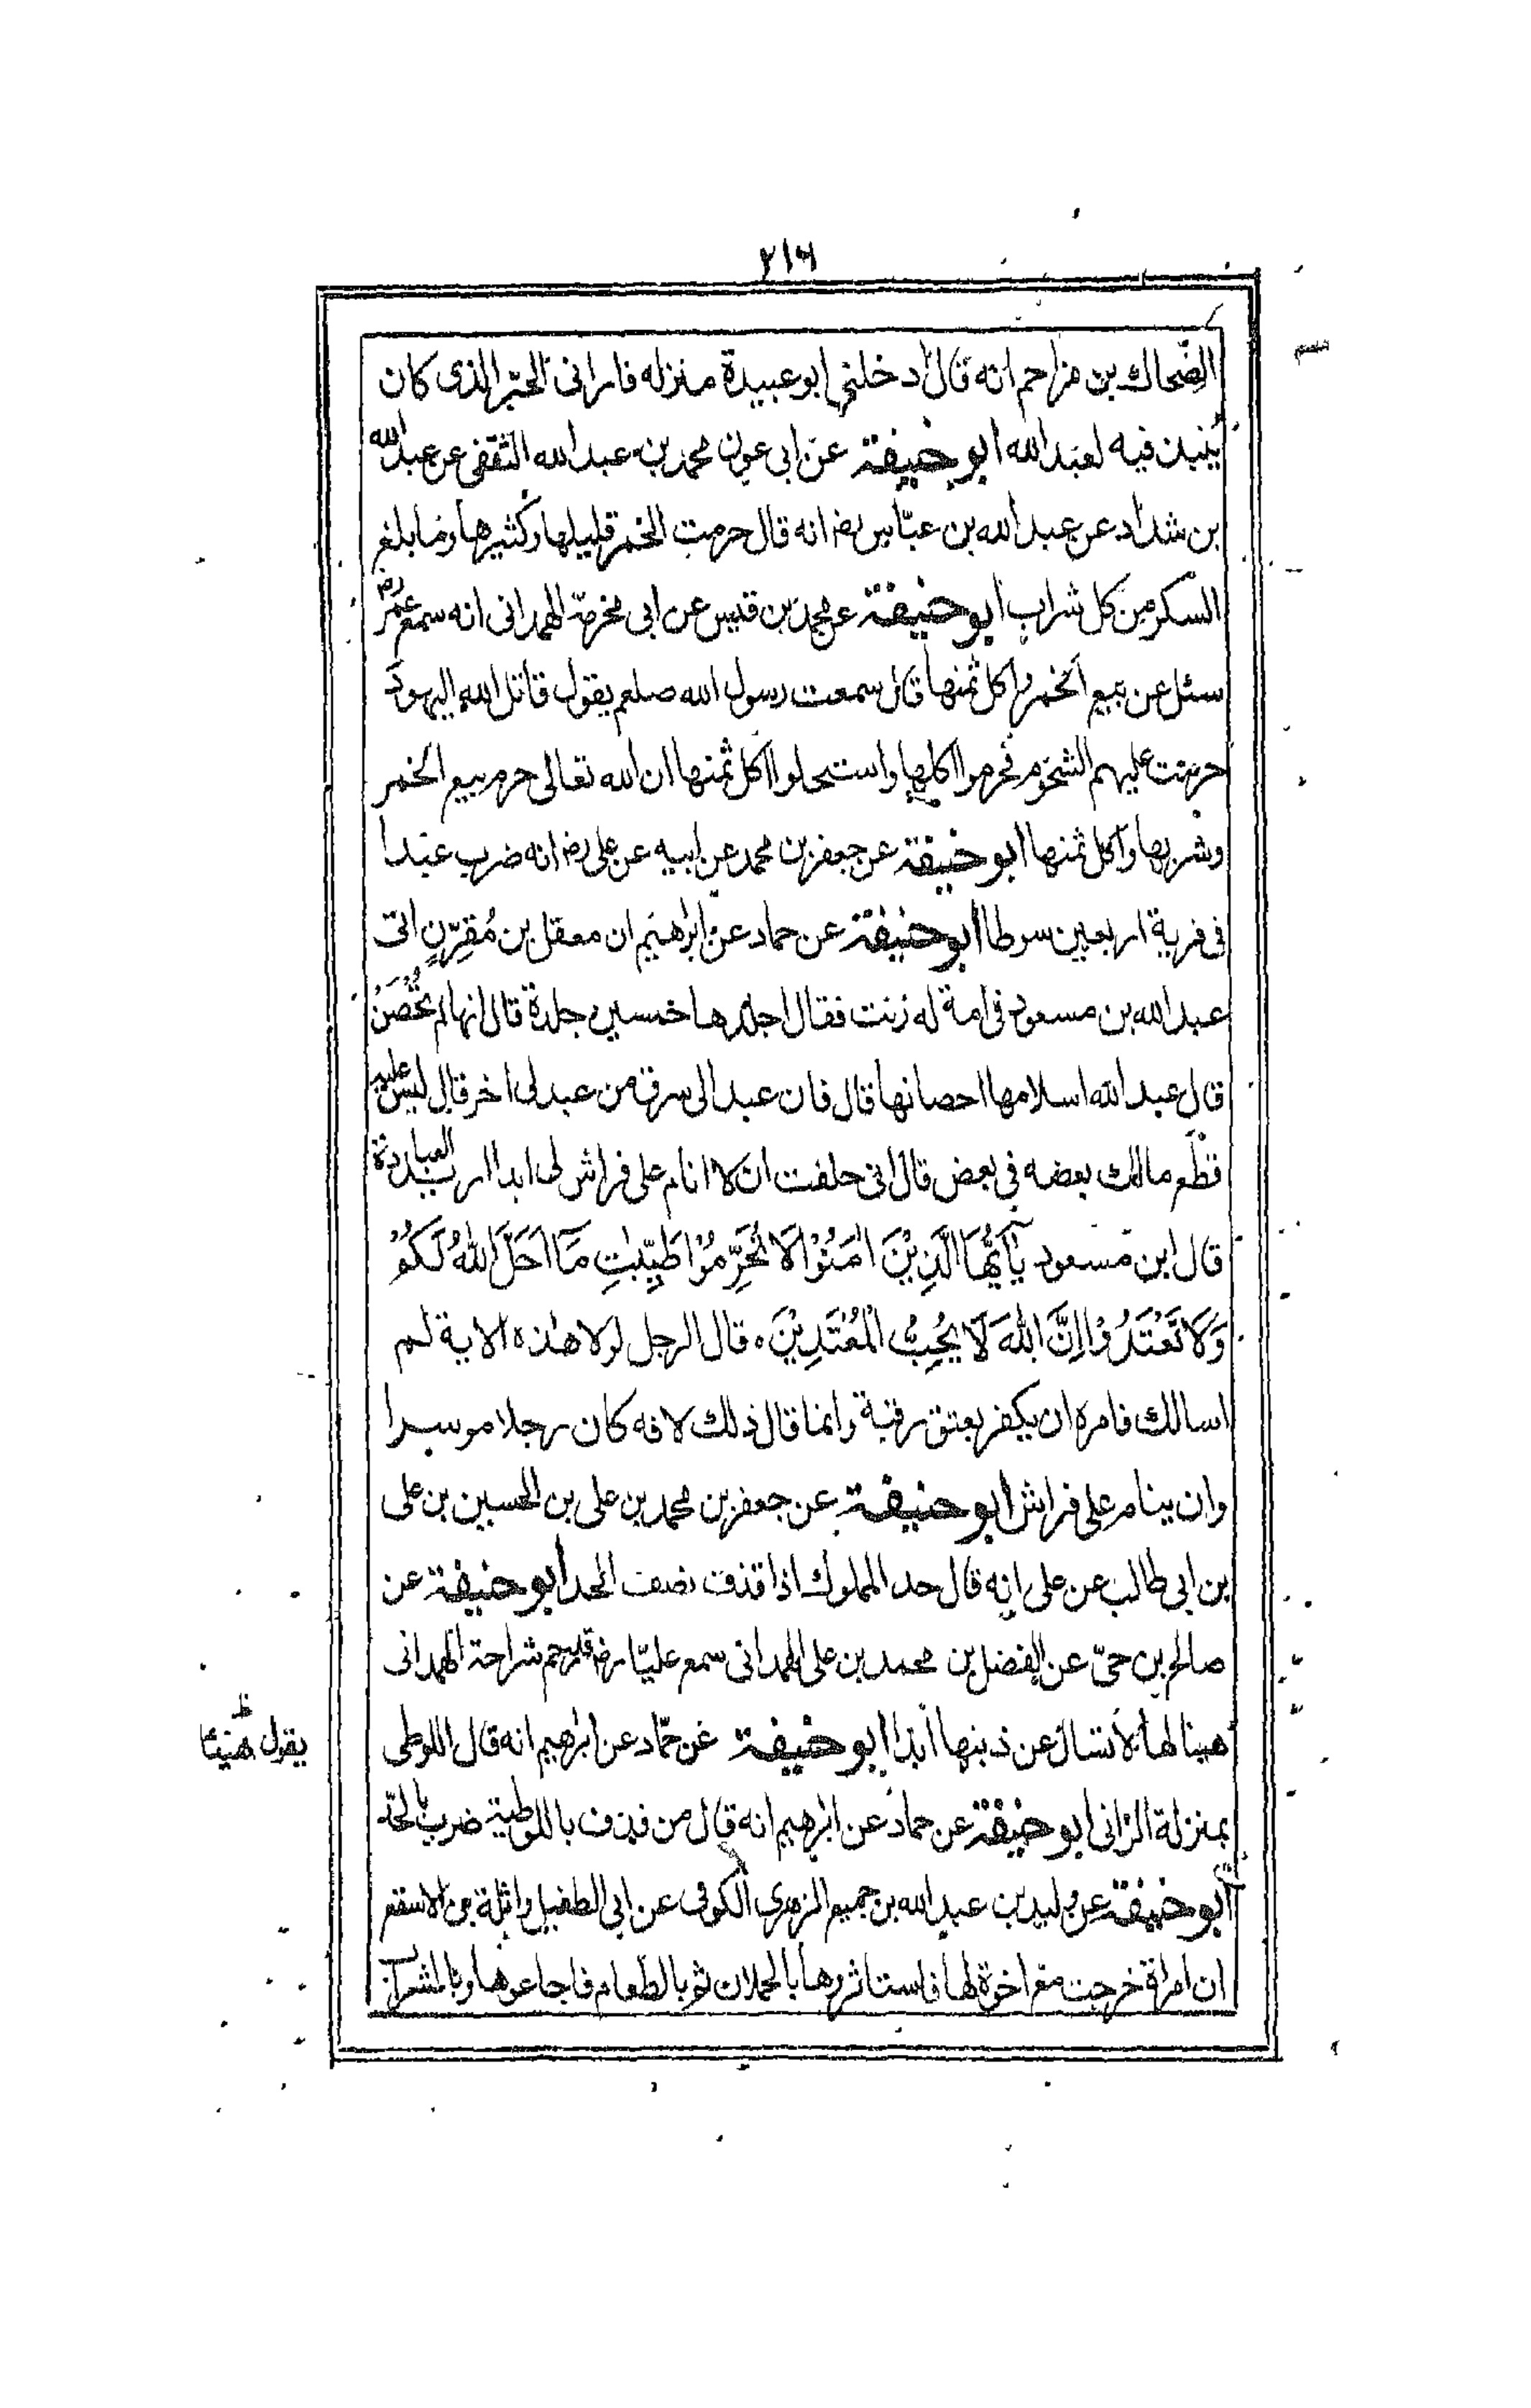 ٢١٦
الضّحاك بن مزاحم انه قال ادخلني ابو عبيدة منزله فارانى الجّر الذى كان
يُنبذ فيه لعبد الله ابو حنيفة عن ابى عون محمد بن عبد الله الثقفى عن عبد الله
بن شداد عن عبد الله بن عبّاس رضـ انه قال حرمت الخمر قليلها وكثيرها وما بلغ
السكر من كل شراب ابو حنيفة عن محمد بن قيس عن ابى مخرمة الهمدانى انه سمع عمر رضـ
سئل عن بيع الخمر واكل ثمنها قال سمعت رسول الله صلعم يقول قاتل الله اليهود
حرمت عليهم الشحوم فحرموا اكلها واستحلوا اكل ثمنها ان الله تعالى حرم بيع الخمر
وشربها واكل ثمنها ابو حنيفة عن جعفر بن محمد عن ابيه عن على رضـ انه ضرب عبدا
فى فرية اربعين سوطا ابو حنيفة عن حماد عن ابرٰهيم ان معقل بن مُقرِّنٍ اتى
عبد الله بن مسعود فى امة له زنت فقال اجلدها خمسين جلدة قال انها لم تُحْصَنْ
قال عبد الله اسلامها احصانها قال فان عبدا لى سرق من عبد لى اخر قال ليس عليه
قطع مالك بعضه فى بعض قال انى حلفت ان لا انام على فراش لى ابدا اريد العبادة
قال ابن مسعود يٰٓاَيُّهَا الَّذِيْنَ اٰمَنُوْا لَا تُحَرِّمُوْا طَيِّبٰتِ مَآ اَحَلَّ اللّٰهُ لَكُمْ
وَلَا تَعْتَدُوْا اِنَّ اللّٰهَ لَا يُحِبُّ الْمُعْتَدِيْنَ ه قال الرجل لولا هذه الاية لم
اسالك فامره ان يكفر بعتق رقبة وانما قال ذلك لانه كان رجلا موسرا
وان ينام على فراش ابو حنيفة عن جعفر بن محمد بن على بن الحسين بن على
بن ابى طالب عن على انه قال حد المملوك اذا قذف نصف الحد ابو حنيفة عن
صالح بن حىّ عن الفضل بن محمد بن على الهمدانى سمع عليّا رضـ قد رجم شراحة الهمدانى
هينا لها لا تسال عن ذنبها ابدا ابو حنيفة عن حمّاد عن ابرٰهيم انه قال اللوطى
يقول هنيئا ظ
بمنزلة الزانى ابو حنيفة عن حماد عن ابرٰهيم انه قال من قذف باللوطية ضرب الحدّ
ابو حنيفة عن وليد بن عبد الله بن جميع الزهرى الكوفى عن ابى الطفيل واثلة بن الاسقع
ان امراة خرجت مع اخوة لها فاستاثروها بالحملان ثم بالطعام فاجاعوها وبالشراب